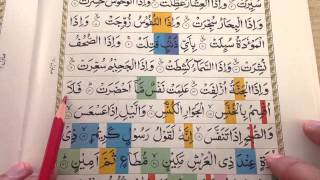 سُيِّرَتْ ۝ وَإِذَا الْعِشَارُ عُطِّلَتْ ۝ وَإِذَا الْوُحُوشُ حُشِرَتْ ۝
وَإِذَا الْبِحَارُ سُجِّرَتْ ۝ وَإِذَا النُّفُوسُ زُوِّجَتْ ۝ وَإِذَا
الْمَوْءُدَةُ سُئِلَتْ ۝ بِأَيِّ ذَنْبٍ قُتِلَتْ ۝ وَإِذَا الصُّحُفُ
نُشِرَتْ ۝ وَإِذَا السَّمَاءُ كُشِطَتْ ۝ وَإِذَا الْجَحِيمُ سُعِّرَتْ ۝
وَإِذَا الْجَنَّةُ أُزْلِفَتْ ۝ عَلِمَتْ نَفْسٌ مَّا أَحْضَرَتْ ۝ فَلَا
أُقْسِمُ بِالْخُنَّسِ ۝ الْجَوَارِ الْكُنَّسِ ۝ وَاللَّيْلِ إِذَا عَسْعَسَ ۝
وَالصُّبْحِ إِذَا تَنَفَّسَ ۝ إِنَّهُ لَقَوْلُ رَسُولٍ كَرِيمٍ ۝ ذِي
قُوَّةٍ عِنْدَ ذِي الْعَرْشِ مَكِينٍ ۝ مُطَاعٍ ثَمَّ أَمِينٍ ۝